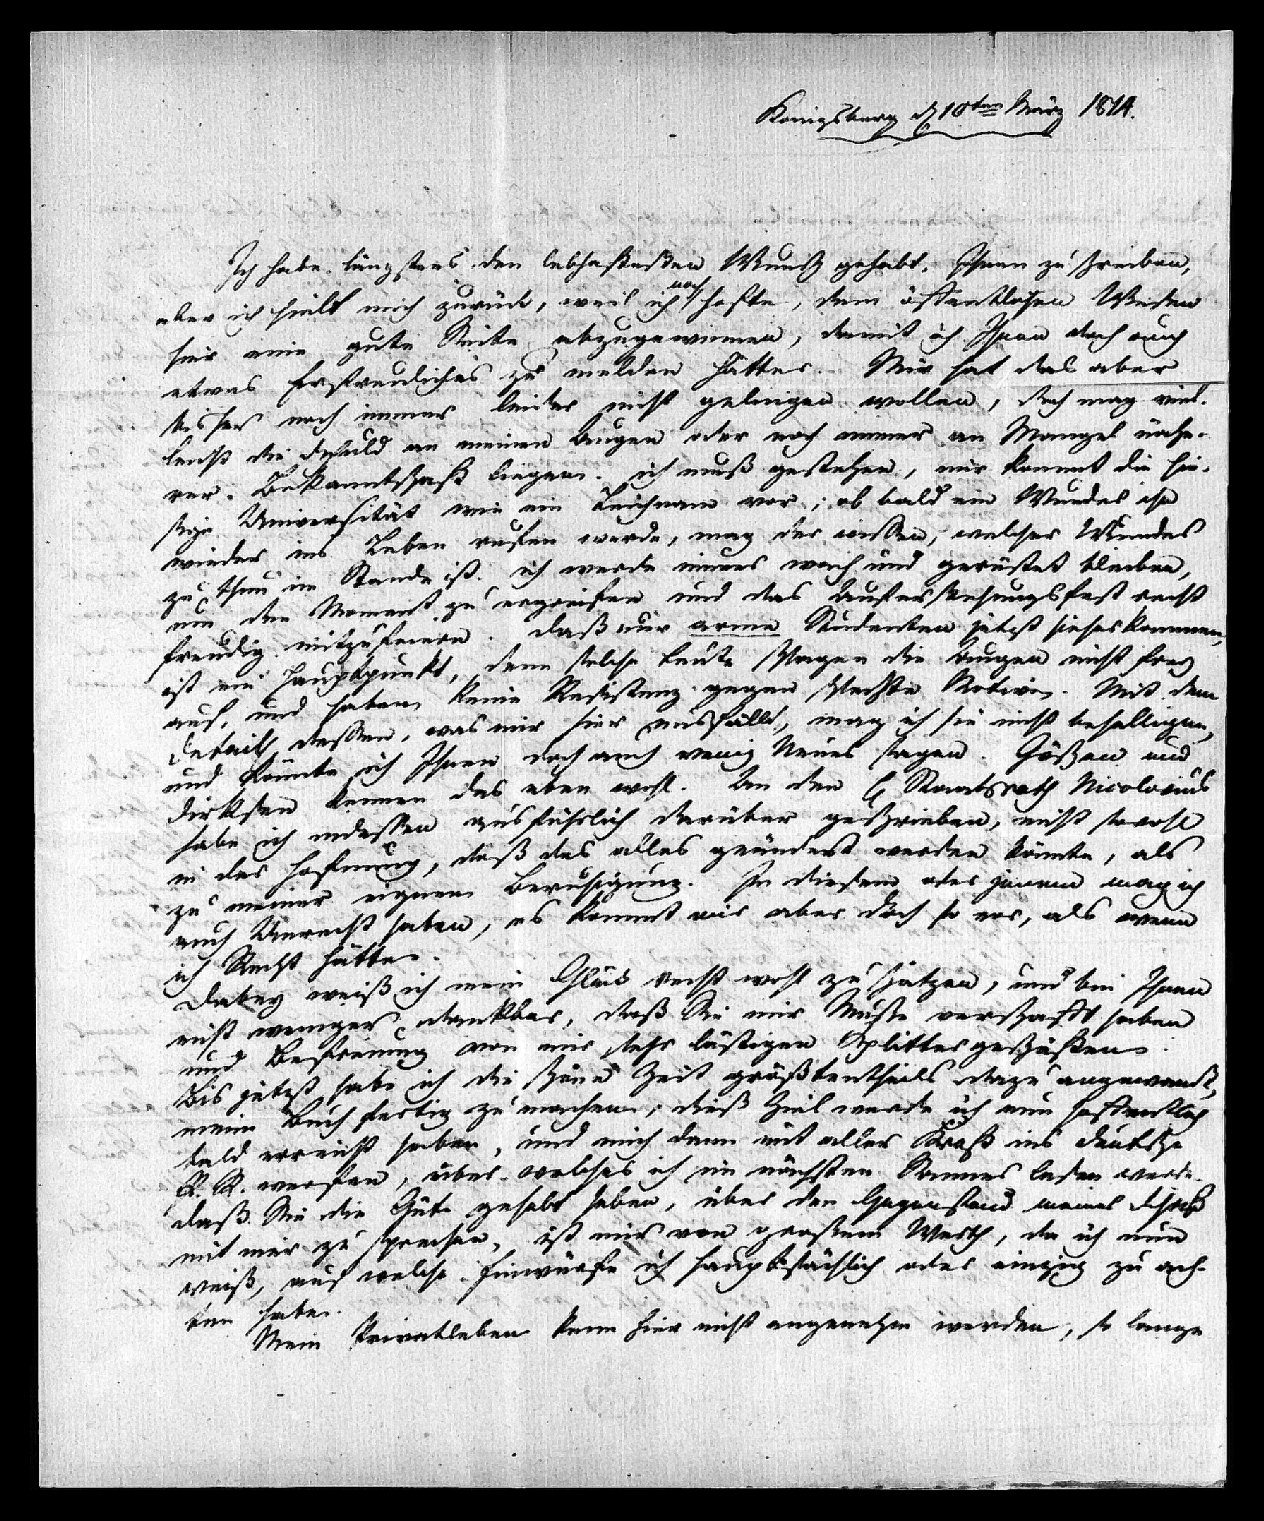 Königsberg d 10ten März 1814.
Ich habe längstens den lebhaftesten Wunsch gehabt, Ihnen zu schreiben,
aber ich hielt mich zurück, weil ich noch hoffte, dem öffentlichen Wesen
hier eine gute Seite abzugewinnen, damit ich Ihnen doch auch
etwas Erfreuliches zu melden hätte. Mir hat das aber
bisher noch immer leider nicht gelingen wollen, doch mag viel-
leicht die Schuld an meinen Augen oder noch immer an Mangel nähe-
rer Bekanntschaft liegen. ich muß gestehen, mir kommt die hie-
sige Universität wie ein Leichnam vor; ob bald ein Wunder ihn
wieder ins Leben rufen werde, mag der wissen, welcher Wunder
zu thun im Stande ist. ich werde immer wach und gerüstet bleiben,
um den Moment zu ergreifen und das Auferstehungsfest recht
freudig mitzufeiern. Daß nur arme Studenten jetzt hieher kommen,
ist ein Hauptpunkt, denn solche Leute schlagen die Augen nicht frey
auf, und haben keine Resistenz gegen schlechte Motive. Mit dem
Detail dessen, was mir hier misfällt, mag ich sie nicht behelligen,
und könnte ich Ihnen doch auch wenig Neues sagen. Göschen und
Dirksen kennen das eben wohl. An den H Staatsrath Nicolovius
habe ich indessen ausführlich darüber geschrieben, nicht sowohl
in der Hoffnung, daß das alles geändert werden könnte, als
zu meiner eignen Beruhigung. In diesem oder jenem mag ich
auch Unrecht haben, es kommt mir aber doch so vor, als wenn
ich Recht hätte.
Dabey weiß ich mein Glück recht wohl zu schätzen, und bin Ihnen
nicht weniger dankbar, daß Sie mir Muße verschafft haben
und Befreiung von mir stets lästigen Splittergeschäften.
Bis jetzt habe ich die schöne Zeit größtentheils dazu angewandt,
mein Buch fertig zu machen; dieß Ziel werde ich nun hoffentlich
bald erreicht haben, und mich dann mit aller Kraft ins deutsche
P. R. werfen, über welches ich im nächsten Sommer lesen werde.
Daß Sie die Güte gehabt haben, über den Gegenstand meines
mit mir zu sprechen, ist mir von großem Werth, da ich nun
weiß, auf welche Einwürfe ich hauptsächlich oder einzig zu ach-
ten habe.
Mein Privatleben kann hier nicht angenehm werden, so lange